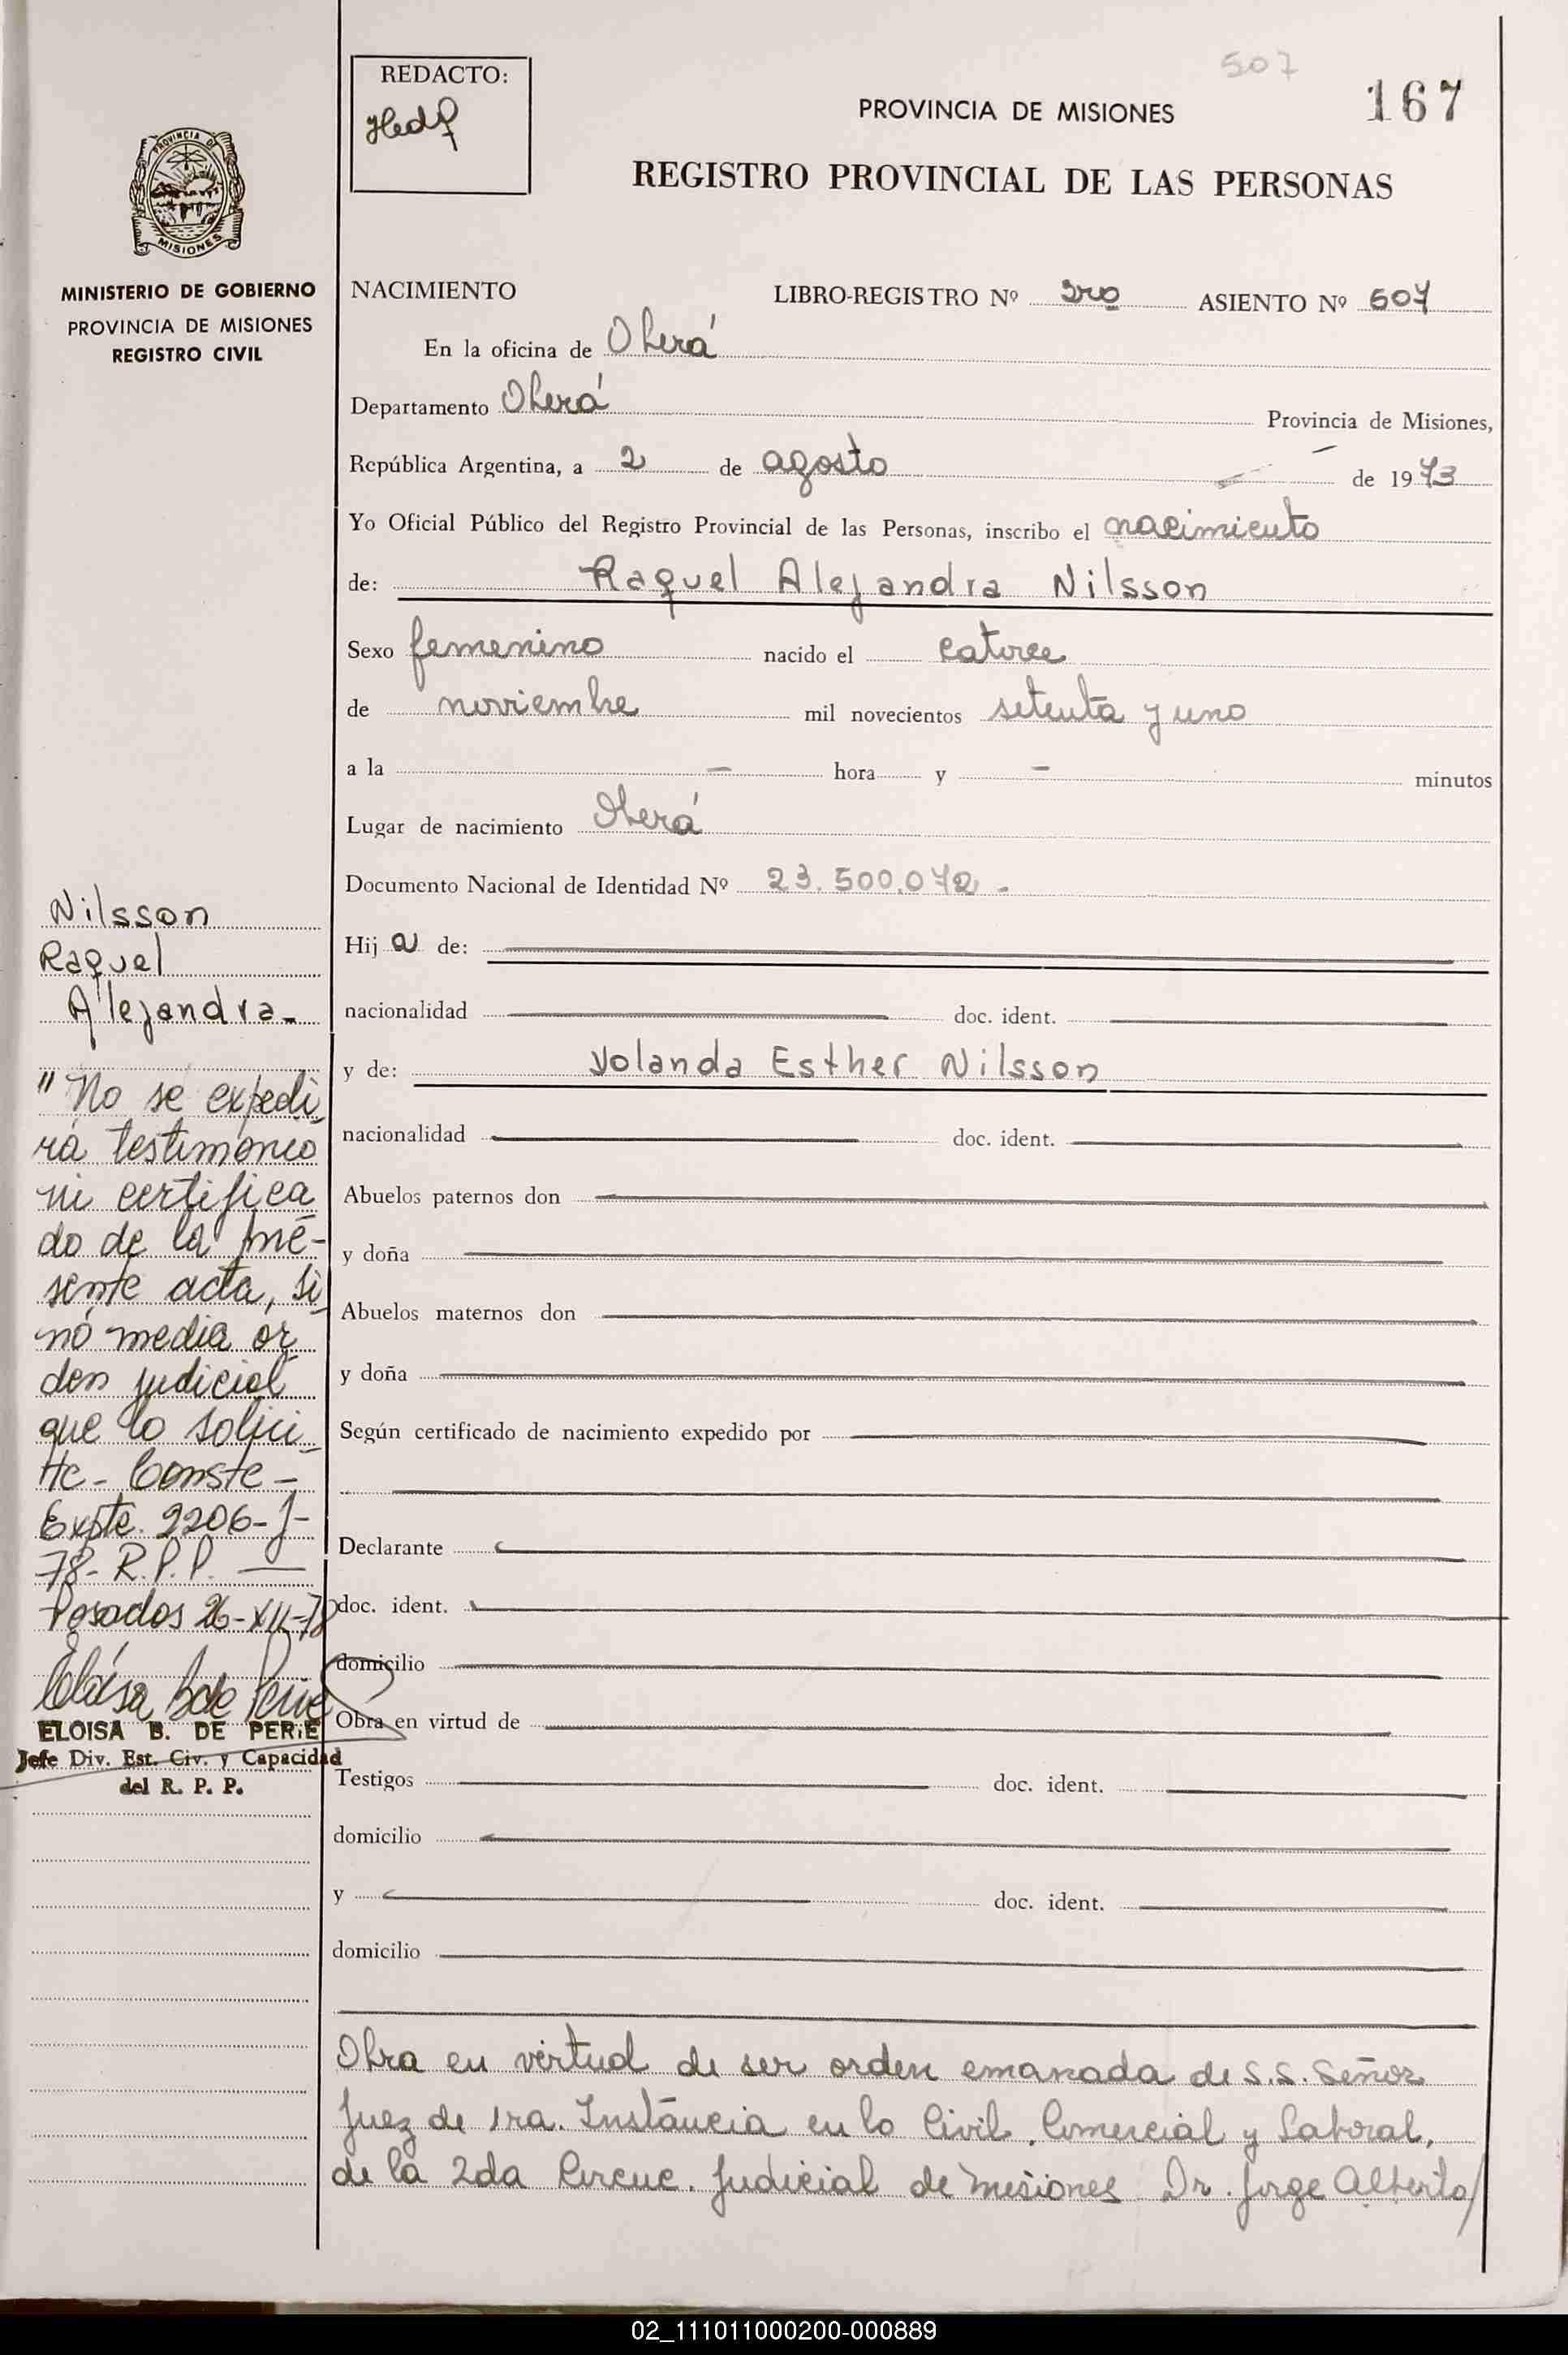 507
REDACTO:
PROVINCIA DE MISIONES
167
REGISTRO PROVINCIAL DE LAS PERSONAS
PROVINCIA DE
MISIONES
MINISTERIO DE GOBIERNO
PROVINCIA DE MISIONES
REGISTRO CIVIL
NACIMIENTO LIBRO-REGISTRO Nº ASIENTO Nº 507
En la oficina de Oberá
Departamento Oberá Provincia de Misiones,
República Argentina, a 2 de agosto de 1973
Yo Oficial Público del Registro Provincial de las Personas, inscribo el nacimiento
de: Raquel Alejandra Nilsson
Sexo femenino nacido el catorce
de noviembre mil novecientos setenta y uno
a la - hora y - minutos
Lugar de nacimiento Oberá
Documento Nacional de Identidad Nº 23.500.072.-
Hij a de:
nacionalidad doc. ident.
y de: Yolanda Esther Nilsson
nacionalidad doc. ident.
Abuelos paternos don
y doña
Abuelos maternos don
y doña
Según certificado de nacimiento expedido por
Declarante
doc. ident.
domicilio
Obra en virtud de
Testigos doc. ident.
domicilio
y doc. ident.
domicilio
Obra en virtud de ser orden emanada de S.S. Señor
Juez de 1ra. Instancia en lo Civil, Comercial y Laboral,
de la 2da Circuc. Judicial de Misiones Dr. Jorge Alberto/
Nilsson
Raquel
Alejandra-
"No se expedi
rá testimonio
ni certifica
do de la pre-
sente acta, si
nó media or
den judicial
que lo solici-
te- Conste-
Expte. 2206-J-
78- R.P.P.
Posadas 26-XII-78
Eloísa B de Perie
ELOISA B. DE PERIE
Jefe Div. Est. Civ. y Capacidad
del R. P. P.
02_111011000200-000889